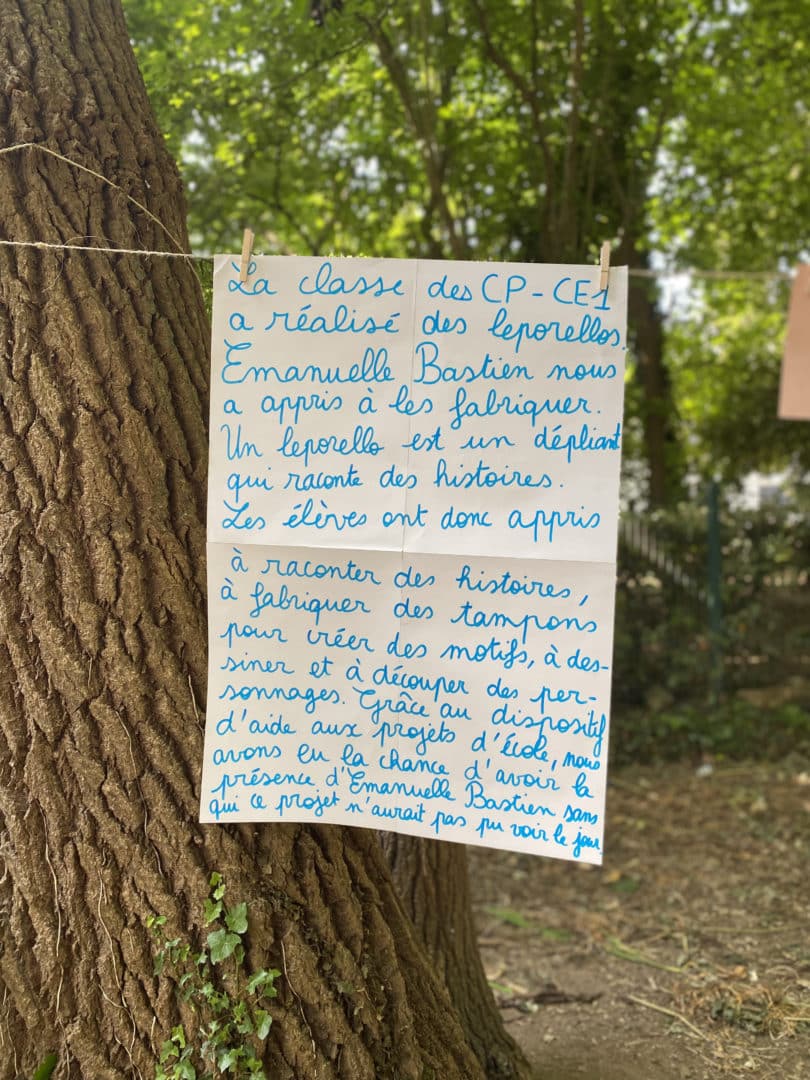 La classe des CP-CE1
a réalisé des leporellos.
Emanuelle Bastien nous
a appris à les fabriquer.
Un leporello est un dépliant
qui raconte des histoires.
Les élèves ont donc appris
à raconter des histoires,
à fabriquer des tampons
pour créer des motifs, à des-
siner et à découper des per-
sonnages. Grâce au dispositif
d'aide aux projets d'école, nous
avons eu la chance d'avoir la
présence d'Emanuelle Bastien sans
qui ce projet n'aurait pas pu voir le jour